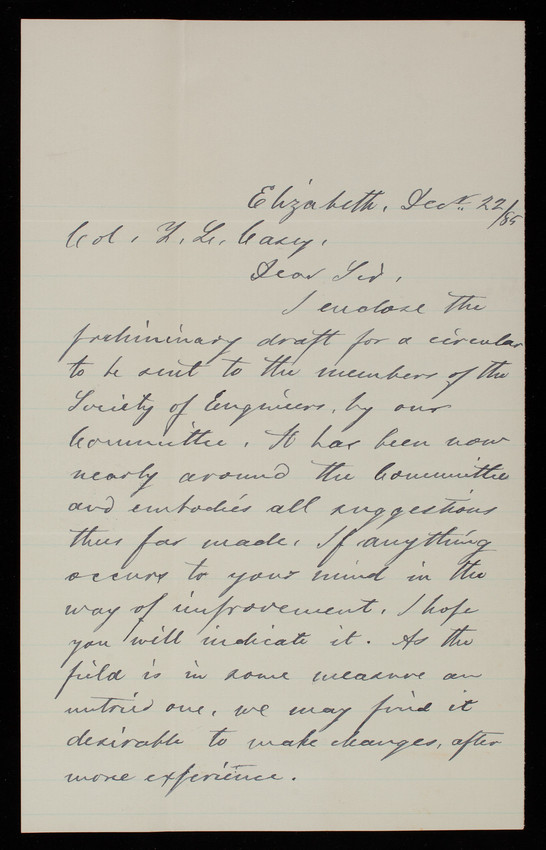 Elizabeth, Decr. 22/85
Col. T. L. Casey,
Dear Sir,
I enclose the
preliminary draft for a circular
to be sent to the members of the
Society of Engineers, by our
Committee. It has been now
nearly around the Committee
and embodies all suggestions
thus far made. If anything
occurs to your mind in the
way of improvement, I hope
you will indicate it. As the
field is in some measure an
untried one, we may find it
desirable to make changes, after
more experience.